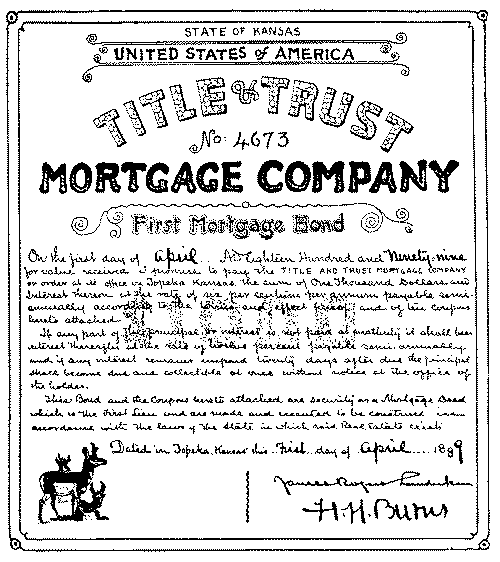 STATE OF KANSAS
UNITED STATES OF AMERICA
TITLE & TRUST
No: 4673
MORTGAGE COMPANY
First Mortgage Bond
On the first day of April AD Eighteen Hundred and Ninety-nine
for value received I promise to pay the TITLE AND TRUST MORTGAGE COMPANY
or order at its office in Topeka Kansas, the sum of One Thousand Dollars and
Interest thereon at the rate of six per centum per annum payable semi-
annually according to the and of ten coupons
hereto attached.
If any part of the principal or interest is not paid at maturity it shall bear
interest thereafter at the rate of twelve percent payable semi-annually
and if any interest remains unpaid twenty days after due the principal
shall become due and collectible at once without notice at the option of
the holder.
This Bond and the Coupons hereto attached are secured by a Mortgage Deed
which is the First Lien and are made and executed to be construed in
accordance with the laws of the State in which said Real Estate exists
Dated in Topeka, Kansas this First day of April 1889
James Rogers
H.H. Burns